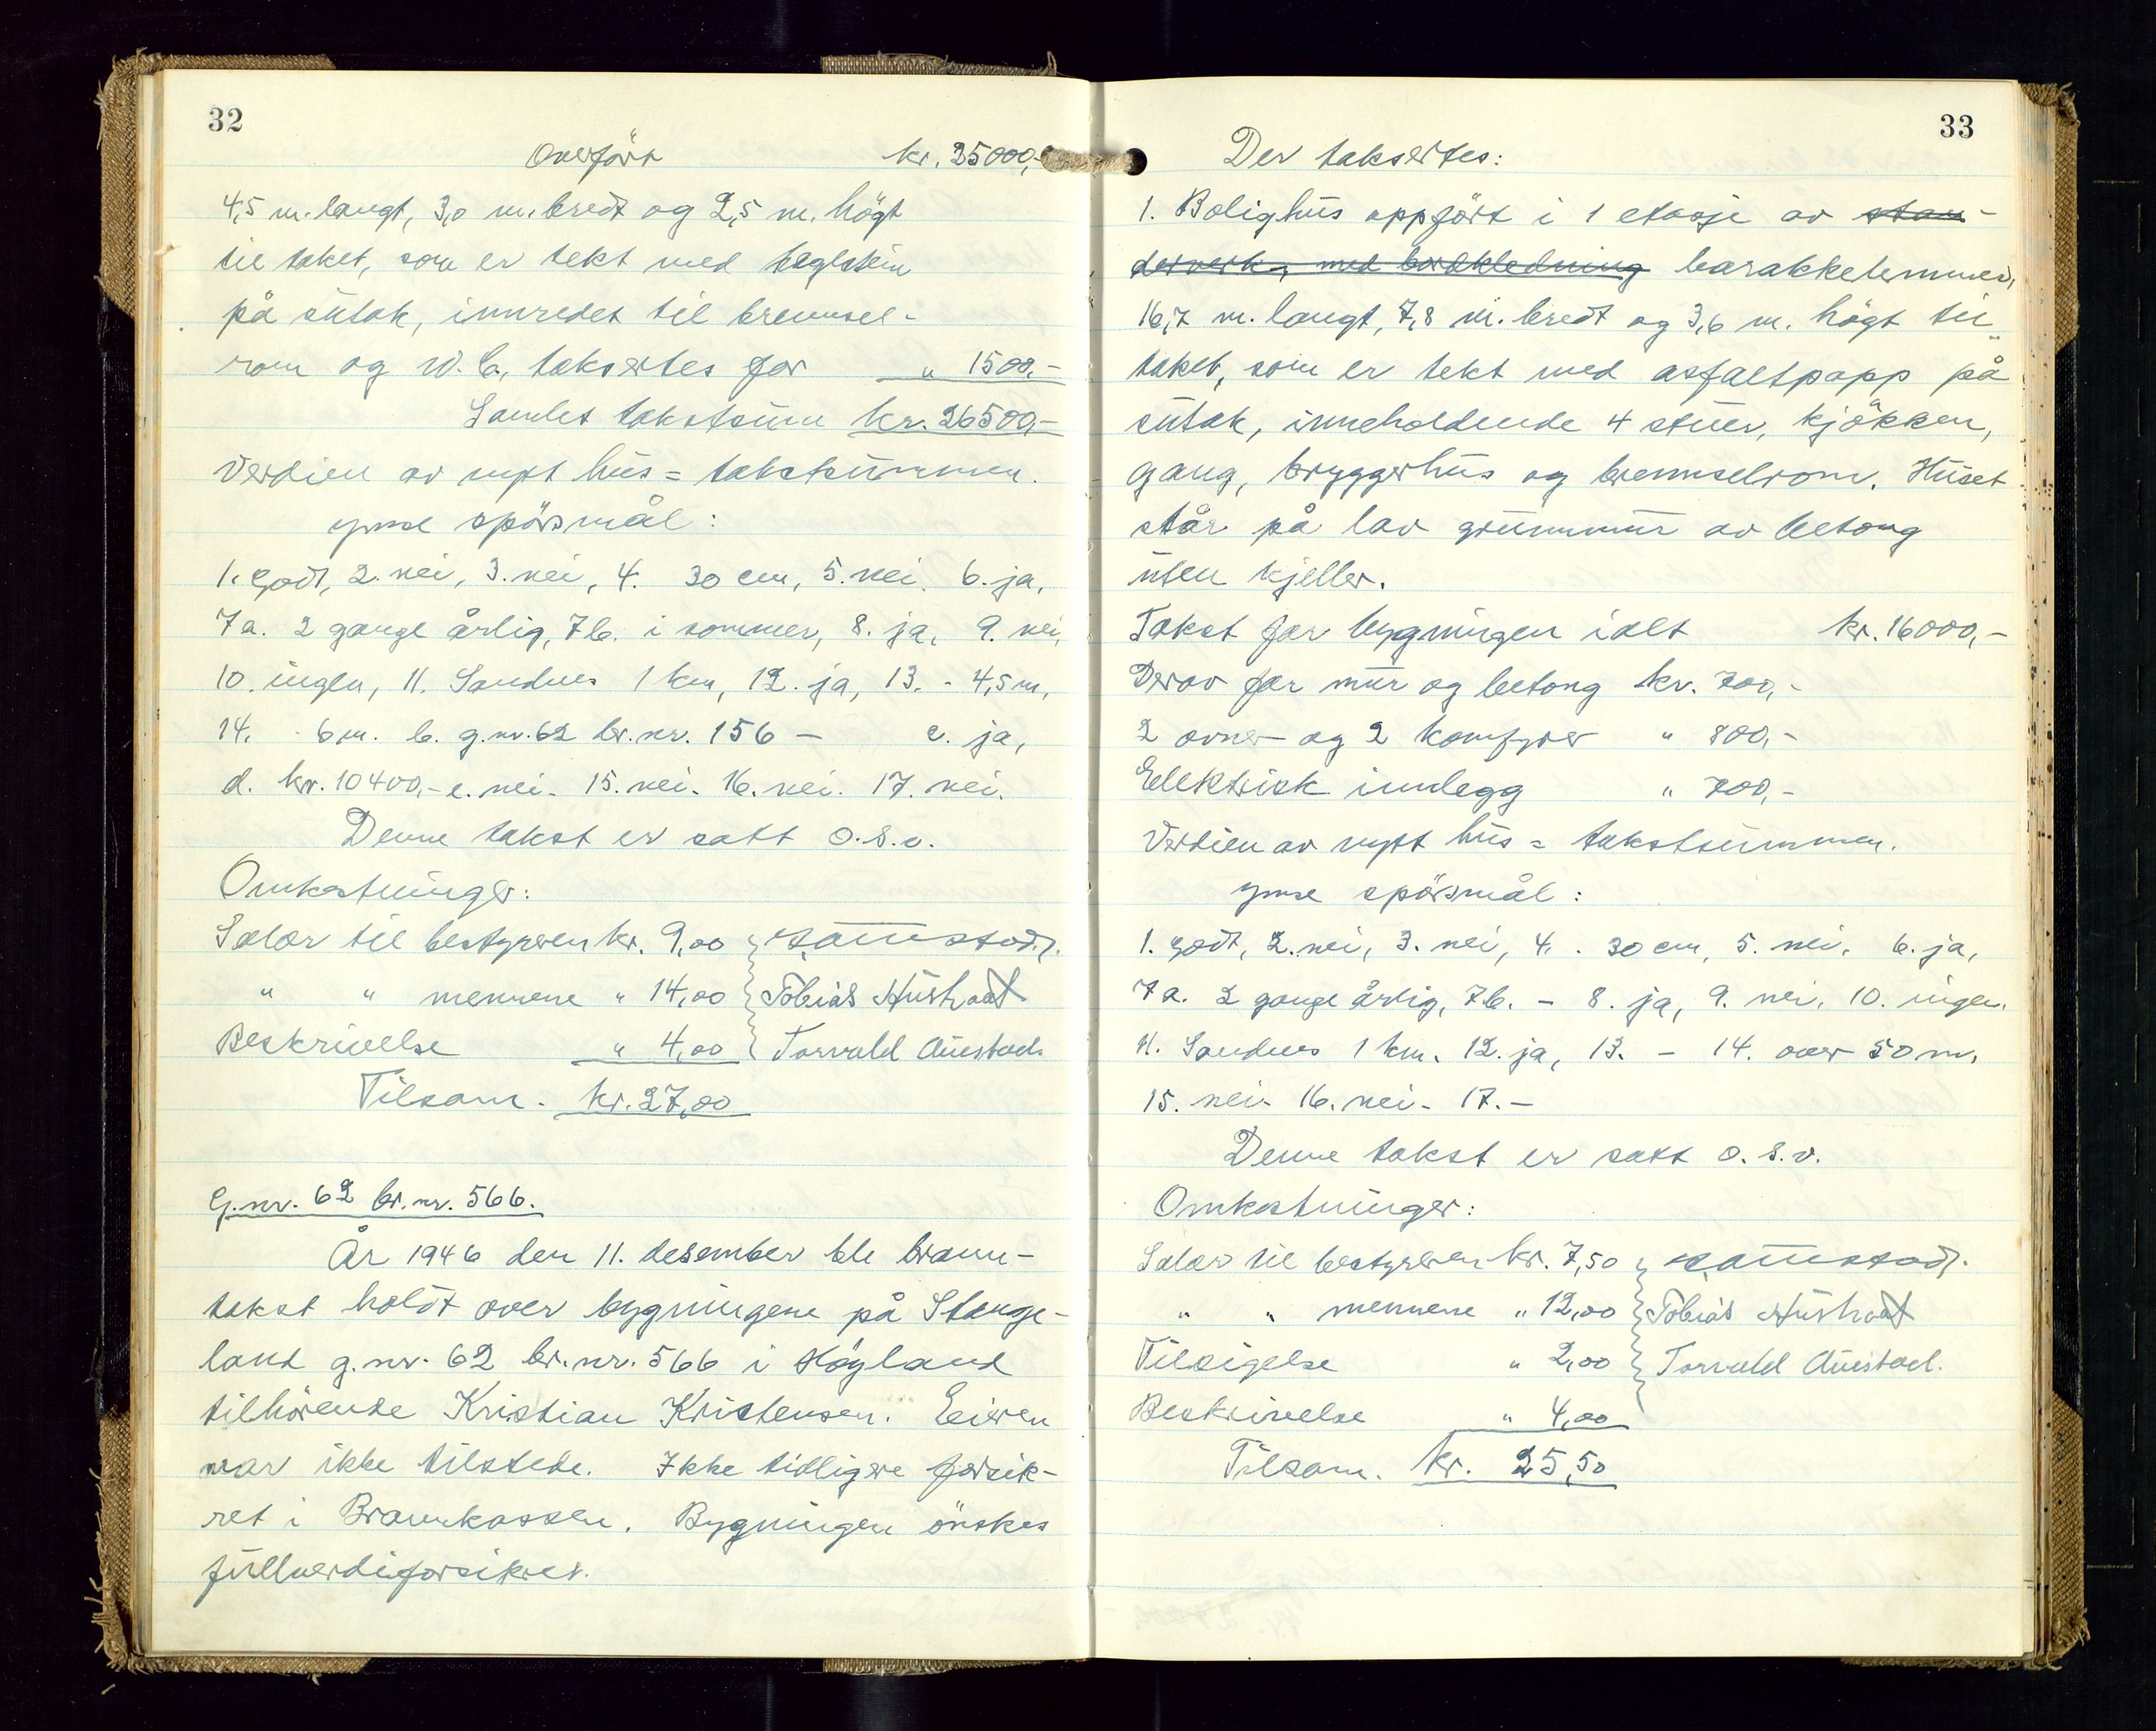 32
Overført kr. 25000,-
4,5 m. langt, 3,0 m. bredt og 2,5 m. högt
til taket, som er tekt med taglstein
på sutak, innredet til brennsel-
rom og W.C., taksertes for " 1500,-
Samlet takstsum kr. 26500,-
Verdien av nytt hus = takstsummen.
Ymse spörsmål:
1. godt, 2. nei, 3. nei, 4. 30 cm, 5. nei. 6. ja,
7a. 2 gange årlig, 7b. i sommer, 8. ja, 9. nei,
10. ingen, 11. Sandnes 1 km, 12. ja, 13. - 4,5 m,
14. 6 m. b. g.nr. 62 br.nr. 156 - c. ja,
d. kr. 10400,- e. nei. 15. nei. 16. nei. 17. nei.
Denne takst er satt o.s.v.
Omkostninger:
Salær til bestyreren kr. 9,00
" " mennene " 14,00 Tobias Husholdt
Beskrivelse " 4,00 Torvald Austad
Tilsam. kr. 27,00
G.nr. 62 br.nr. 566.
År 1946 den 11. desember ble brann-
takst holdt over bygningene på Stange-
land g.nr. 62 br.nr. 566 i Høyland
tilhörende Kristian Kristensen. Eieren
var ikke tilstede. Ikke tidligere forsik-
ret i Brannkassen. Bygningen önskes
fullverdiforsikret.
33
Der taksertes:
1. Bolighus oppfört i 1 etasje av stan-
derverk, med bordkledning barakkelemmer,
16,7 m. langt, 7,8 m. bredt og 3,6 m. högt til
taket, som er tekt med asfaltpapp på
sutak, inneholdende 4 stuer, kjökken,
gang, bryggerhus og brennselrom. Huset
står på lav grunnmur av betong
uten kjeller.
Takst for bygningen ialt kr. 16000,-
Derav for mur og betong kr. 700,-
2 ovner og 2 komfyrer " 800,-
Elektrisk innlegg " 700,-
Verdien av nytt hus = takstsummen.
Ymse spörsmål:
1. godt, 2. nei, 3. nei, 4. 30 cm, 5. nei, 6. ja,
7a. 2 gange årlig, 7b. - 8. ja, 9. nei, 10. ingen.
11. Sandnes 1 km. 12. ja, 13. - 14. over 50 m,
15. nei. 16. nei. 17. -
Denne takst er satt o.s.v.
Omkostninger:
Salær til bestyreren kr. 7,50
" " mennene " 12,00 Tobias Husholdt
Tilsigelse " 2,00 Torvald Austad.
Beskrivelse " 4,00
Tilsam. kr. 25,50